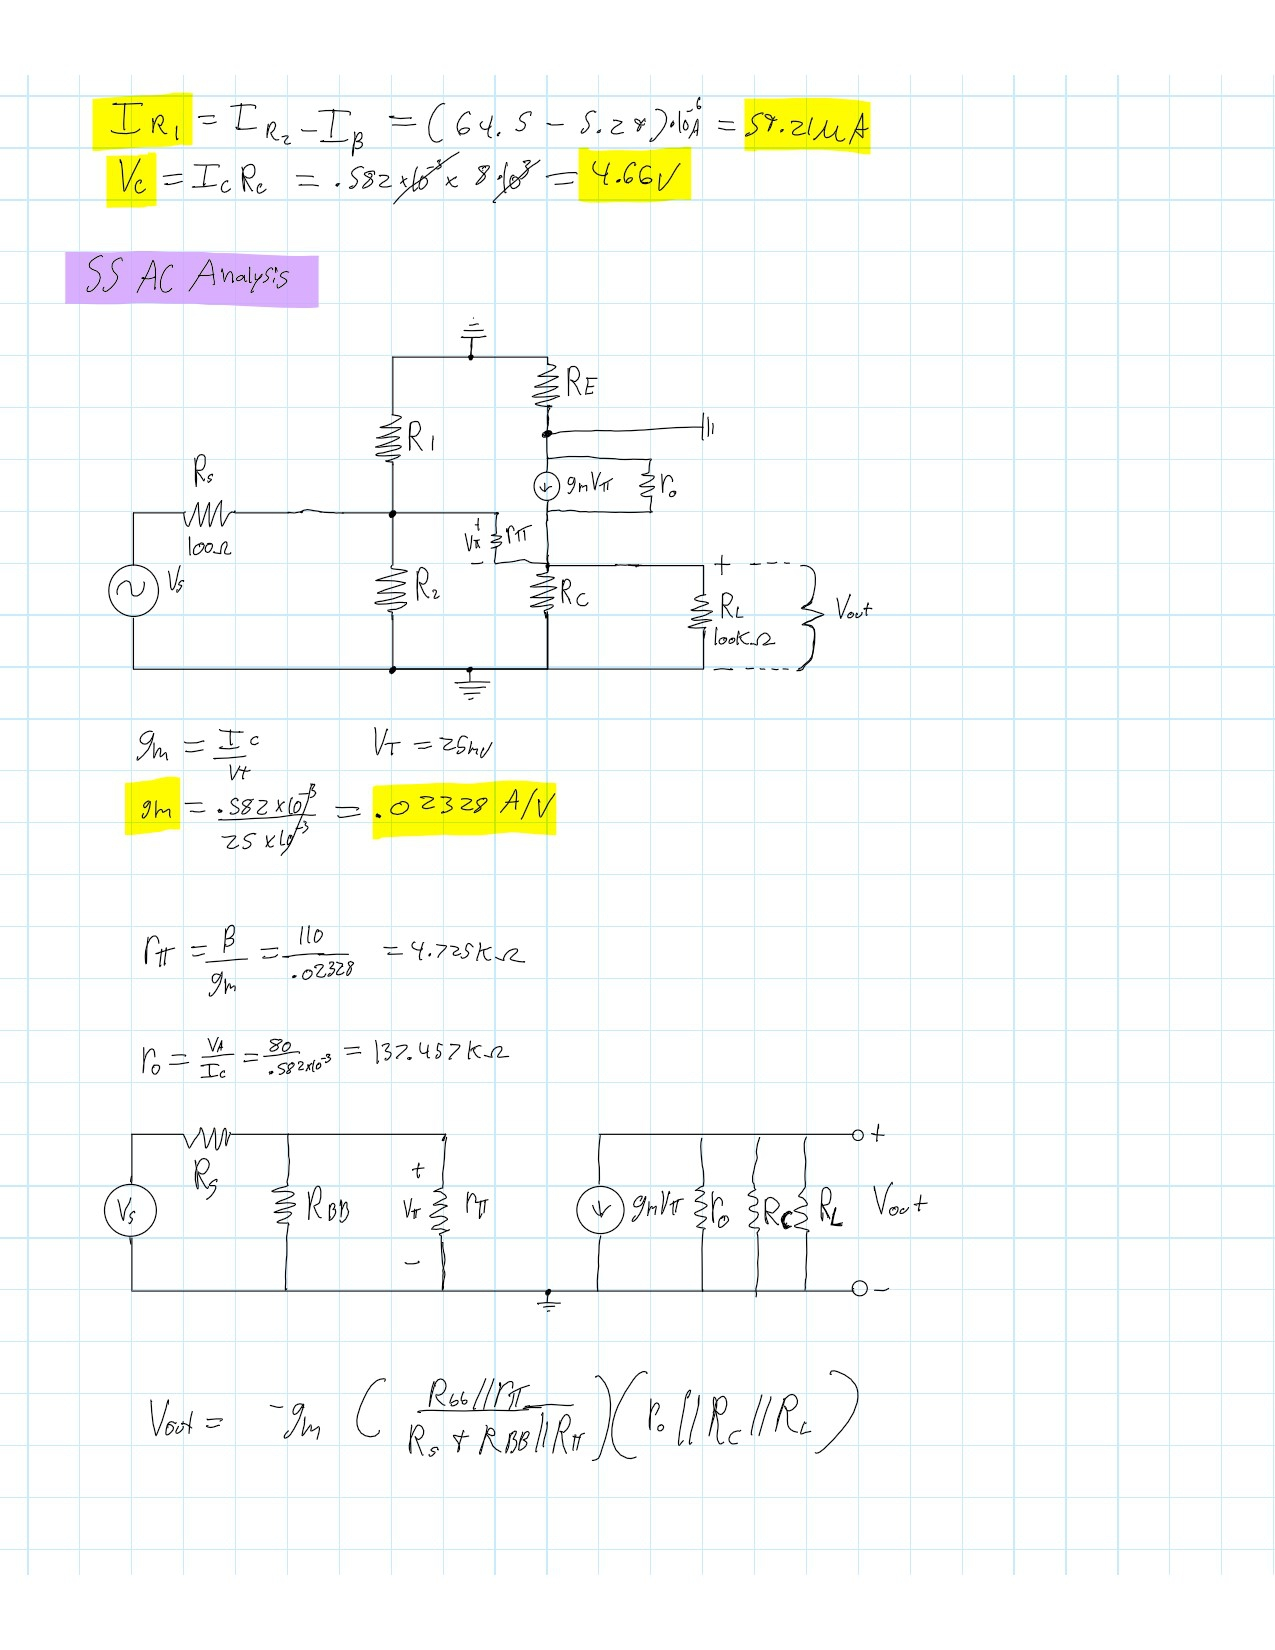 I_R1 = I_R2 - I_B = (64.5 - 5.29)·10^-6 A = 59.21μA
V_C = I_C R_C = .582 x 10^-3 x 8·10^3 = 4.66V
SS AC Analysis
R_E
R_1
g_m V_π
r_o
R_s
100Ω
+
V_π
r_π
-
V_s
R_2
R_C
+
R_L
100KΩ
V_out
g_m = I_C / V_t
V_T = 25mV
g_m = .582 x 10^-3 / 25 x 10^-3 = .02328 A/V
r_π = β / g_m = 110 / .02328 = 4.725KΩ
r_o = V_A / I_C = 80 / .582x10^-3 = 137.457KΩ
R_S
V_s
R_BB
+
V_π
-
r_π
g_m V_π
r_o
R_C
R_L
+
V_out
-
V_out = -g_m ( R_bb // r_π / R_s + R_BB // R_π ) ( r_o // R_C // R_L )